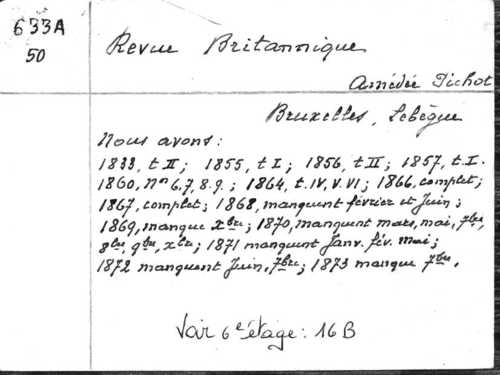 633A
50
Revue Britannique
Amédée Pichot
Bruxelles, Lebègue
Nous avons :
1833, t II ; 1855, t I ; 1856, t II ; 1857, t. I.
1860, Nos 6, 7, 8. 9. ; 1864, t. IV, V. VI ; 1866, complet ;
1867, complet ; 1868, manquent février et Juin ;
1869, manque Xbre ; 1870, manquent mars, mai, 7bre,
8bre, 9bre, Xbre ; 1871 manquent Janv. fév. mai ;
1872 manquent Juin, 7bre ; 1873 manque 7bre.
Voir 6e étage : 16 B